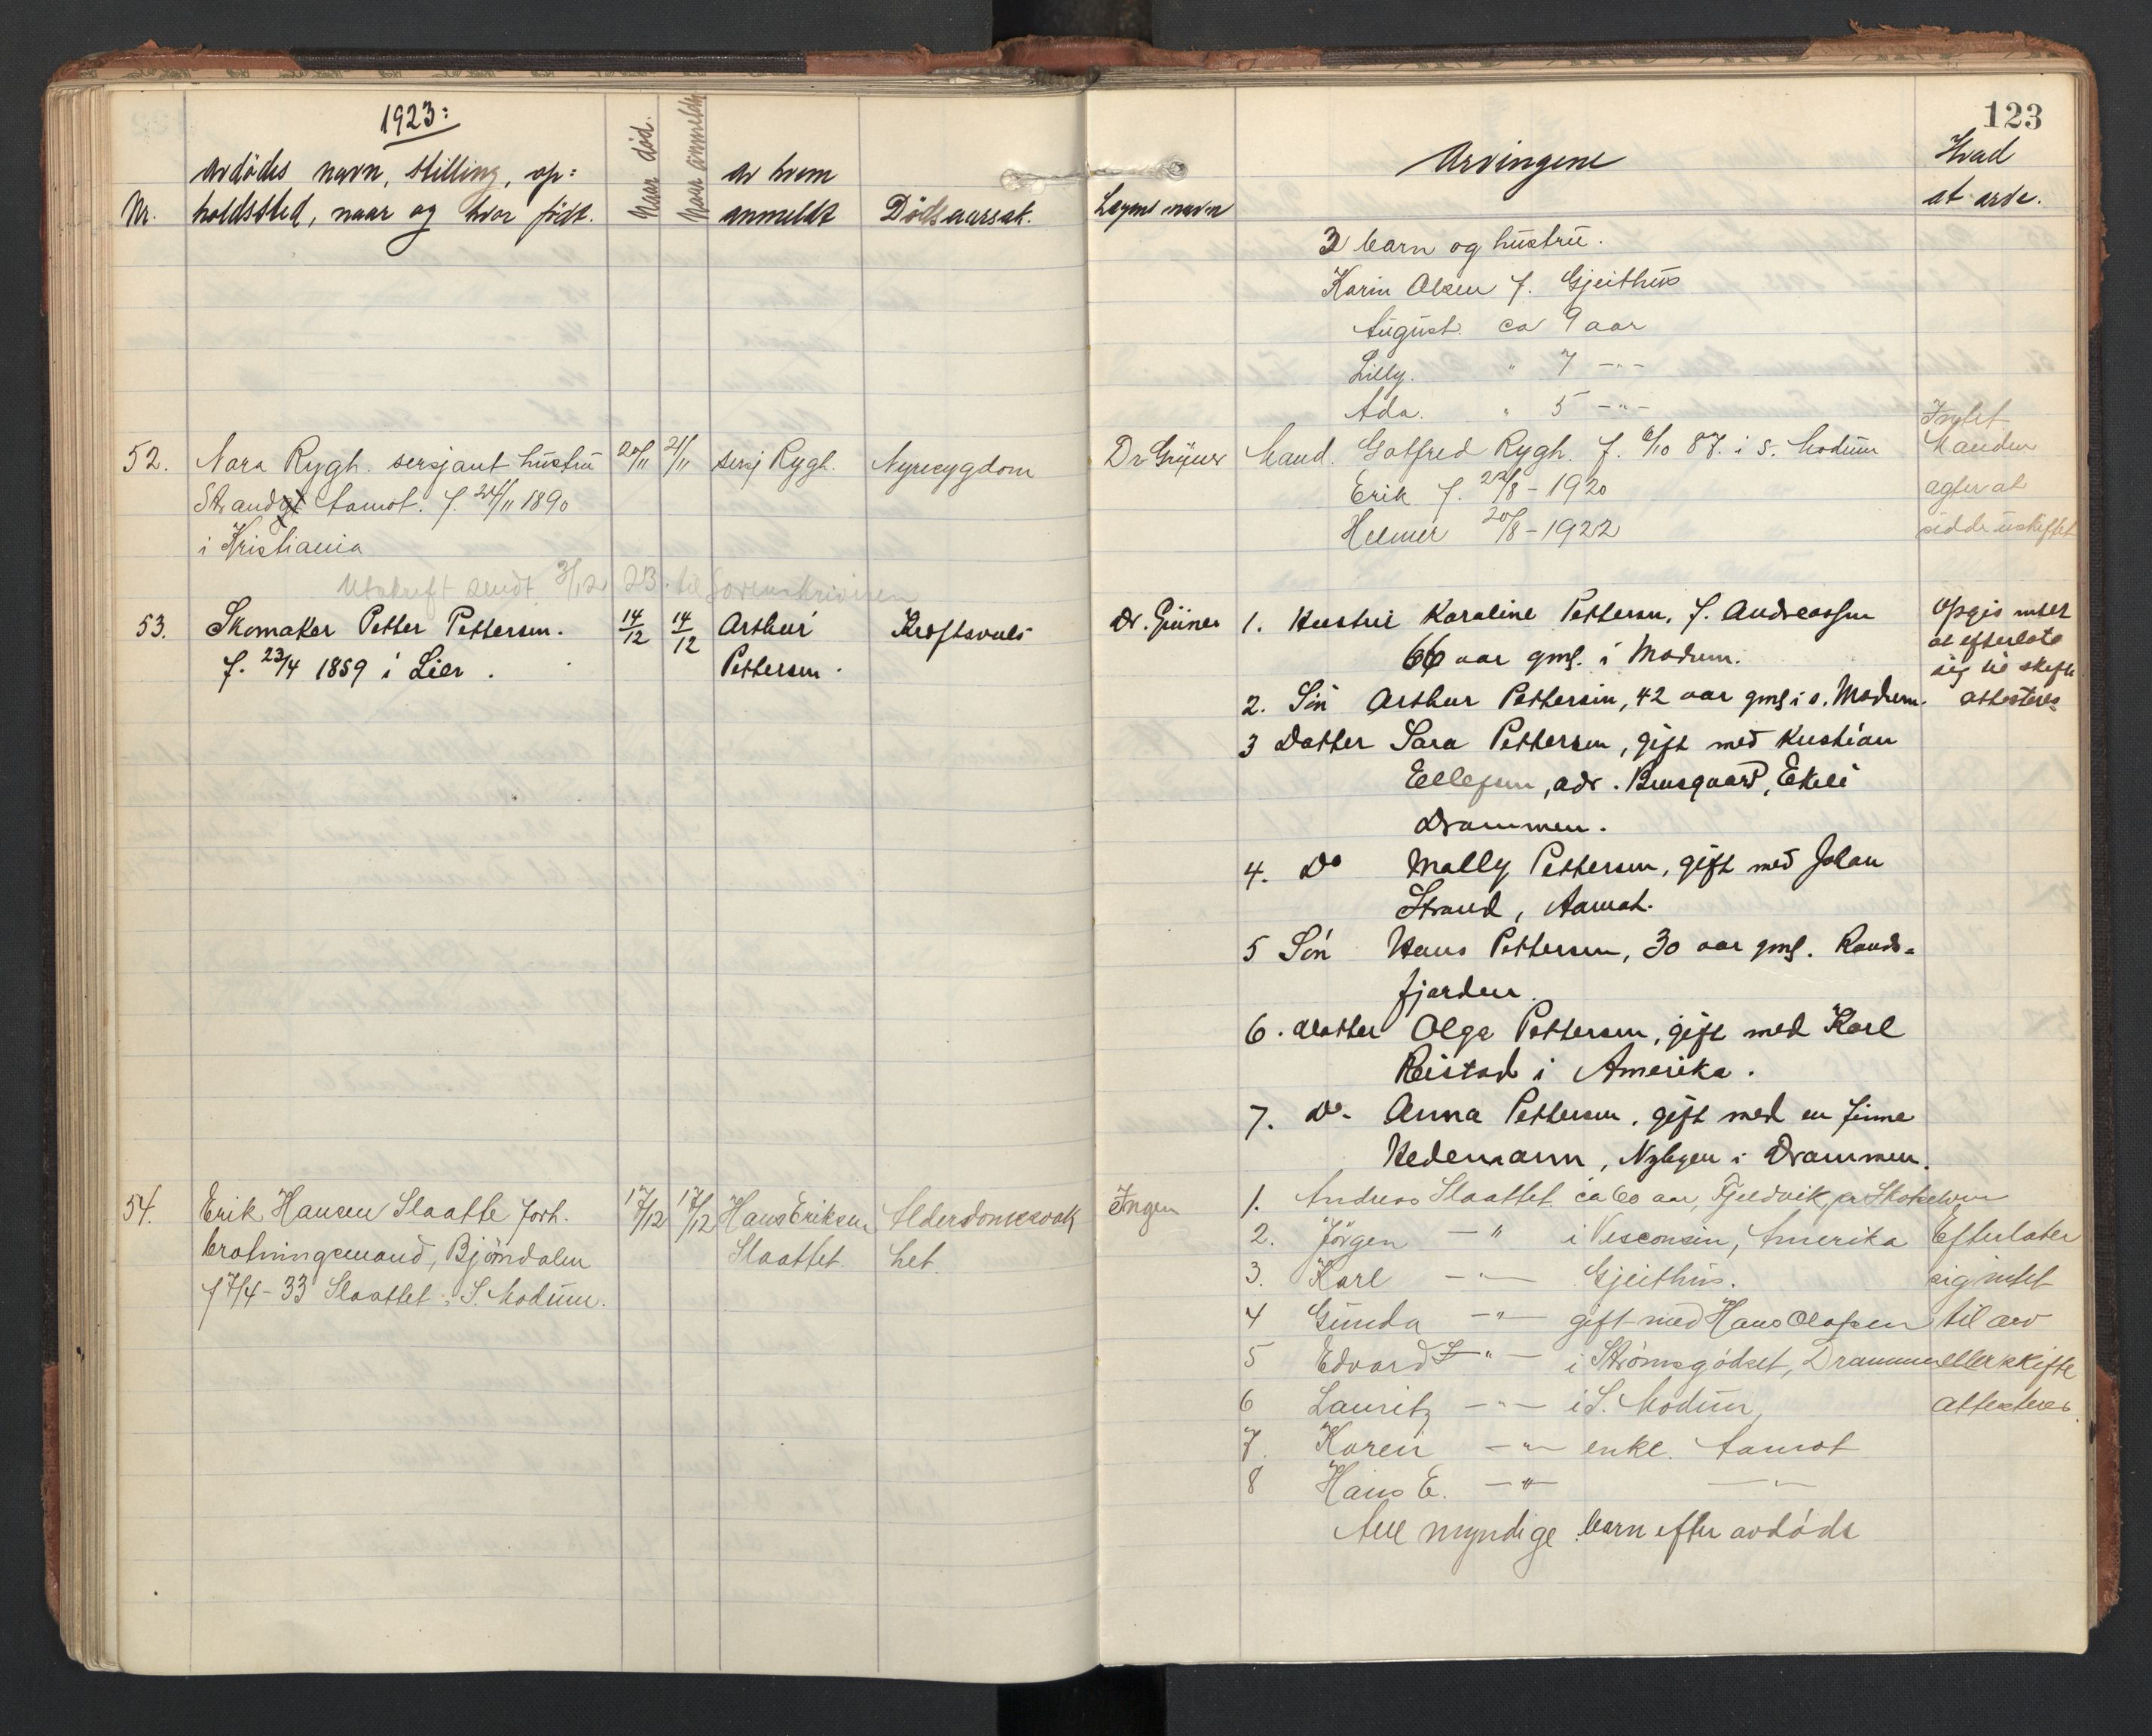 1923:
123
Nr.
Avdödes navn, stilling, op=
holdssted, naar og hvor födt.
Naar död.
Naar anmeldt
Av hvem
anmeldt
Dödsaarsak.
Lægens navn
Arvingene
Hvad
at arve.
3 barn og hustru.
Karin Olsen f. Gjeithus
August. ca 9 aar
Lilly. " 7 -"-
Ada. " 5 -"-
52. Nora Rygh. sersjant hustru
Strand Aamot. f. 24/11 1890
i Kristiania
20/11
21/11
sersj Rygh.
Nyresygdom
Dr Grüner
Mand. Gotfred Rygh. f. 6/10 87. i S. Modum
Erik f. 22/8 - 1920
Helmer 20/8 - 1922
Intet
Manden
agter at
sidde uskiftet
Utskrift sendt 3/12 23. til Sorenskriveren
53. Skomaker Petter Pettersen.
f. 23/4 1859 i Lier.
14/12
14/12
Arthur
Pettersen.
Kræftsvuls
Dr. Grüner
1. Hustru Karoline Pettersen, f. Andreassen
66 aar gml. i Modum.
2. Sön Arthur Pettersen, 42 aar gml i s. Modum.
3 Datter Sara Pettersen, gift med Kristian
Ellefsen, adr. Brusgaard, Ekeli
Drammen.
4. Do Mally Pettersen, gift med Johan
Strand, Aamot.
5 Sön Hans Pettersen, 30 aar gml. Rands=
fjorden.
6. Datter Olga Pettersen, gift med Karl
Reistad i Amerika.
7. Do. Anna Pettersen, gift med en finne
Hedemann, Nybyen i Drammen.
Opgis intet
at efterlate
sig til skifte
attesteres
54. Erik Hansen Slaatte forh.
brotningsmand, Björndalen
f 7/4 - 33 Slaattet, S. Modum.
17/12
17/12
Hans Eriksen
Slaattet.
Alderdomssvak
het.
Ingen
1. Andreas Slaattet ca 60 aar, Fjeldvik pr Skotselven
2. Jörgen -"- i Visconsin, Amerika
3. Karl -"- Gjeithus.
4 Gunda -"- gift med Hans Olafsen
5 Edvard -"- i Strömsgodset, Drammen
6 Lauritz -"- i S. Modum,
7. Karen -"- enke. Aamot
8 Hans E. -"- -"-
Alle myndige barn efter avdöde
Efterlater
sig intet
til arv
eller skifte
attesteres.